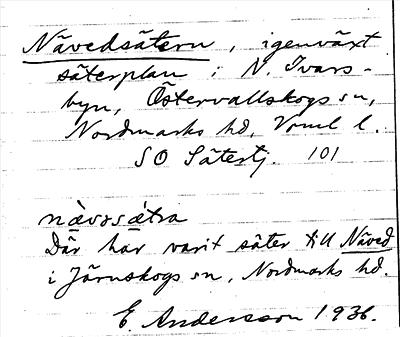 Nävedsätern, igenväxt
säterplan i N. Ivars-
byn, Östervallskogs sn,
Nordmarks hd, Vrml l.
SO Sätertj. 101
nàvəsǽtra
Där har varit säter till Näved
i Järnskogs sn, Nordmarks hd.
E. Andersson 1936.